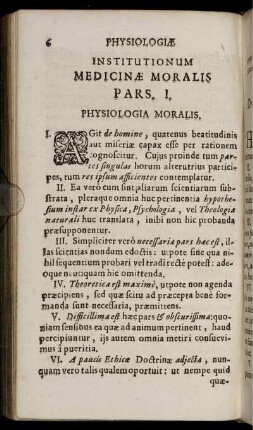 6 PHYSIOLOGIÆ
INSTITUTIONUM
MEDICINÆ MORALIS
PARS. I.
PHYSIOLOGIA MORALIS.
I. AGit de homine, quatenus beatitudinis
aut miseriæ capax esse per rationem
cognoscitur. Cujus proinde tum par-
tes singulas horum alterutrius partici-
pes, tum res ipsum afficientes contemplatur.
II. Ea verò cum sint aliarum scientiarum sub-
strata, pleraque omnia huc pertinentia hypothe-
sium instar ex Physica, Psychologia, vel Theologia
naturali huc translata, inibi non hic probanda
præsupponentur.
III. Simpliciter verò necessaria pars hæc est, il-
las scientias nondum edoctis: utpote sine qua ni-
hil sequentium probari vel tradi rectè potest: ade-
oque neutiquam hic omittenda.
IV. Theoretica est maximè, utpote non agenda
præcipiens, sed quæ scitu ad præcepta benè for-
manda sunt necessaria, præmittens.
V. Difficillima est hæc pars & obscurissima: quo-
niam sensibus ea quæ ad animum pertinent, haud
percipiuntur, ijs autem omnia metiri consuevi-
mus à pueritia.
VI. A paucis Ethicæ Doctrinæ adjecta, nun-
quam vero talis qualem oportuit: ut nempe quid
quæ-